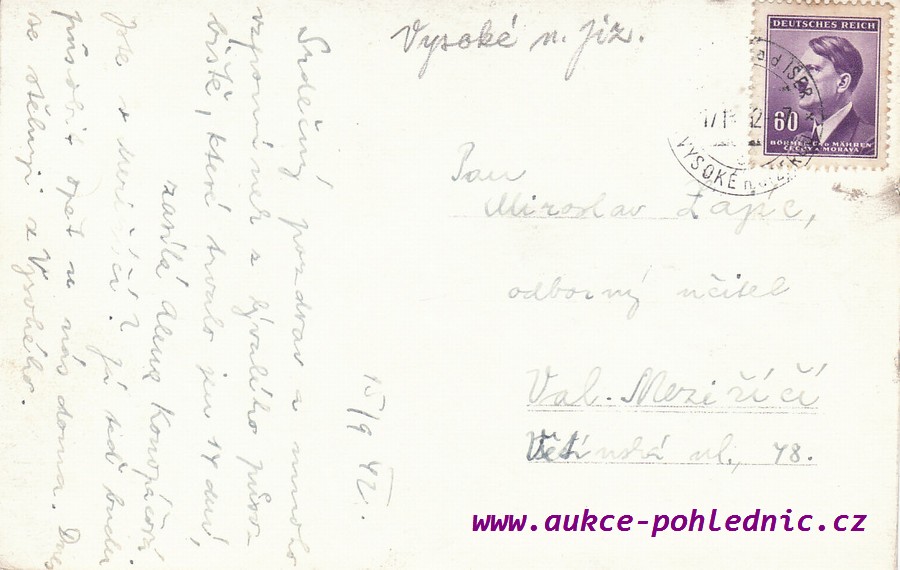 Vysoké n. Jiz.
DEUTSCHES REICH
60
BÖHMEN UND MÄHREN
ČECHY A MORAVA
VYSOKÉ n.
Pan
Miroslav Lapč,
odborný učitel
Val. Meziříčí
ul., 48.
15/9 42.
Srdečný pozdrav a mnoho
vzpomínek z bývalého působ-
iště, které trvalo jen 14 dní,
zasílá Alena Konopáčová
Jste v Meziříčí? Já teď budu
působit opět u nás doma. Dnes
se stěhuji z Vysokého.
www.aukce-pohlednic.cz